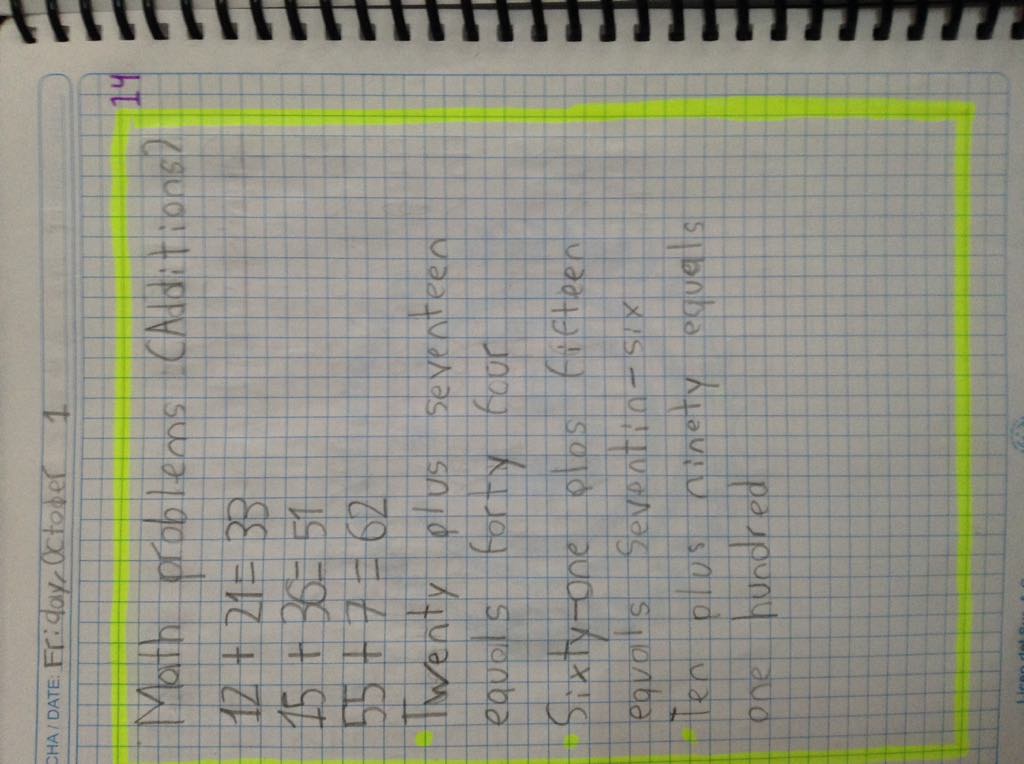 CHA / DATE: Friday, October 1
14
Math problems (Additions)
12 + 21 = 33
15 + 36 = 51
55 + 7 = 62
Twenty plus seventeen
equals forty four
Sixty-one plos fifteen
equols seventin-six
Ten plus ninety equals
one hundred